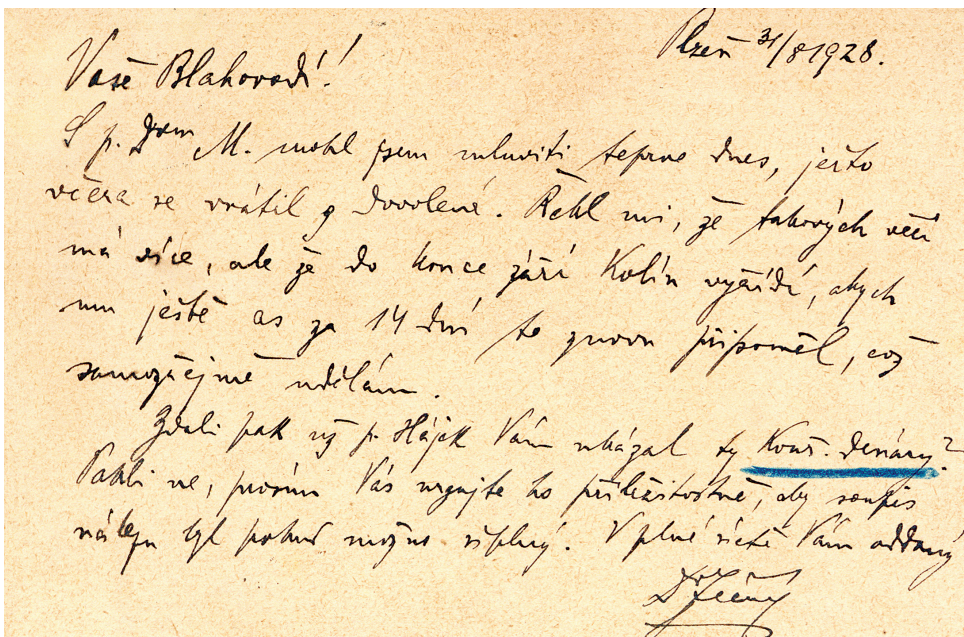 Plzeň 31/8 1928.
Vaše Blahorodí!
S p. M. mohl jsem mluviti teprve dnes, ježto
včera se vrátil z dovolené. Řekl mi, že takových věcí
má více, ale že do konce září Kolín vyřídí, abych
mu ještě as za 14 dní to znovu připoměl, což
samozřejmě udělám.
Zdali pak už p. Hájek Vám ukázal ty Kouř. denáry?
Pakli ne, prosím Vás urgujte ho příležitostně, aby soupis
nálezu byl pokud možno úplný. V plné úctě Vám oddaný